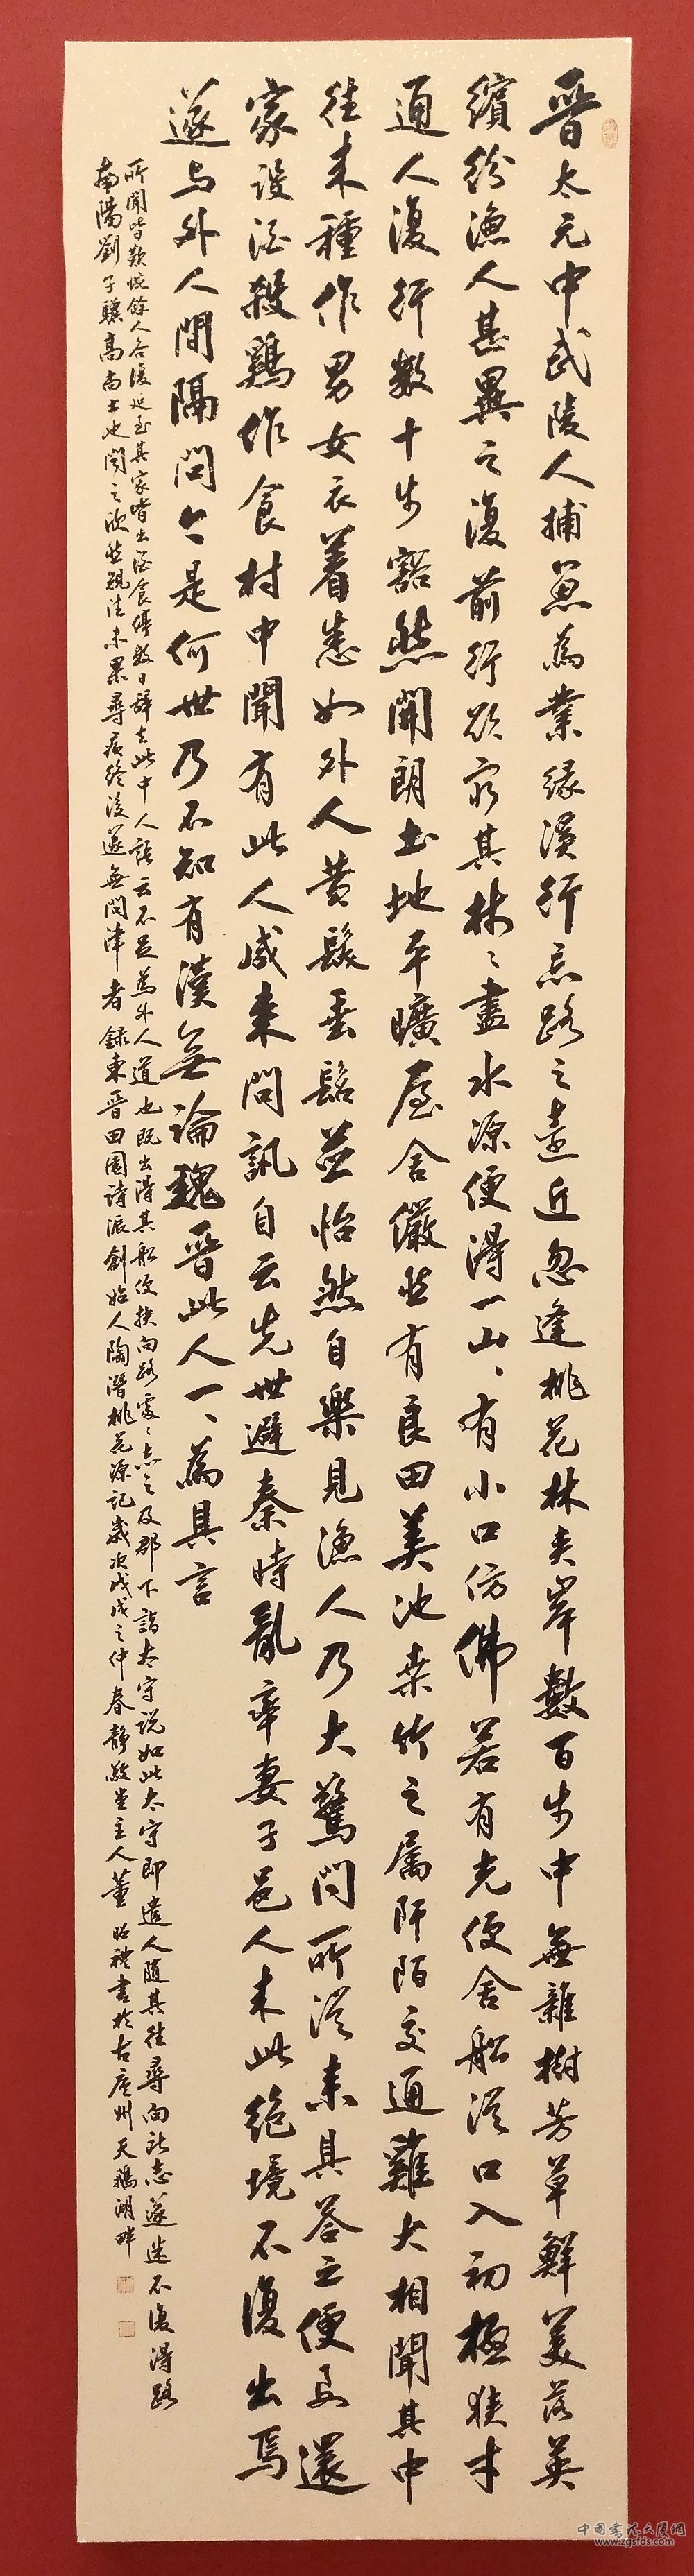 晋太元中武陵人捕魚為業缘溪行忘路之遠近忽逢桃花林夹岸數百步中無雜樹芳草鮮美落英
繽紛渔人甚異之復前行欲窮其林〻盡水源便得一山〻有小口仿佛若有光便舍船從口入初極狭才
通人復行數十步豁然開朗土地平曠屋舍儼然有良田美池桑竹之属阡陌交通雞犬相聞其中
往来種作男女衣着悉如外人黄髮垂髫並怡然自樂見渔人乃大驚問所從来具答之便要還
家設酒殺鷄作食村中聞有此人咸来問訊自云先世避秦時亂率妻子邑人来此绝境不復出焉
遂与外人間隔問今是何世乃不知有漢無論魏晋此人一〻為具言
所聞皆歎惋餘人各復延至其家皆出酒食停数日辞去此中人語云不足為外人道也既出得其船便扶向路處〻志之及郡下詣太守说如此太守即遣人随其往尋向所志遂迷不復得路
南陽劉子驥高尚士也聞之欣然親往未果尋病终後遂無問津者録東晋田園詩派創始人陶潛桃花源記歲次戊戌之仲春静敬堂主人董昭禮書於古廬州天鹅湖畔
中国书法大展网
www.zgsfds.com